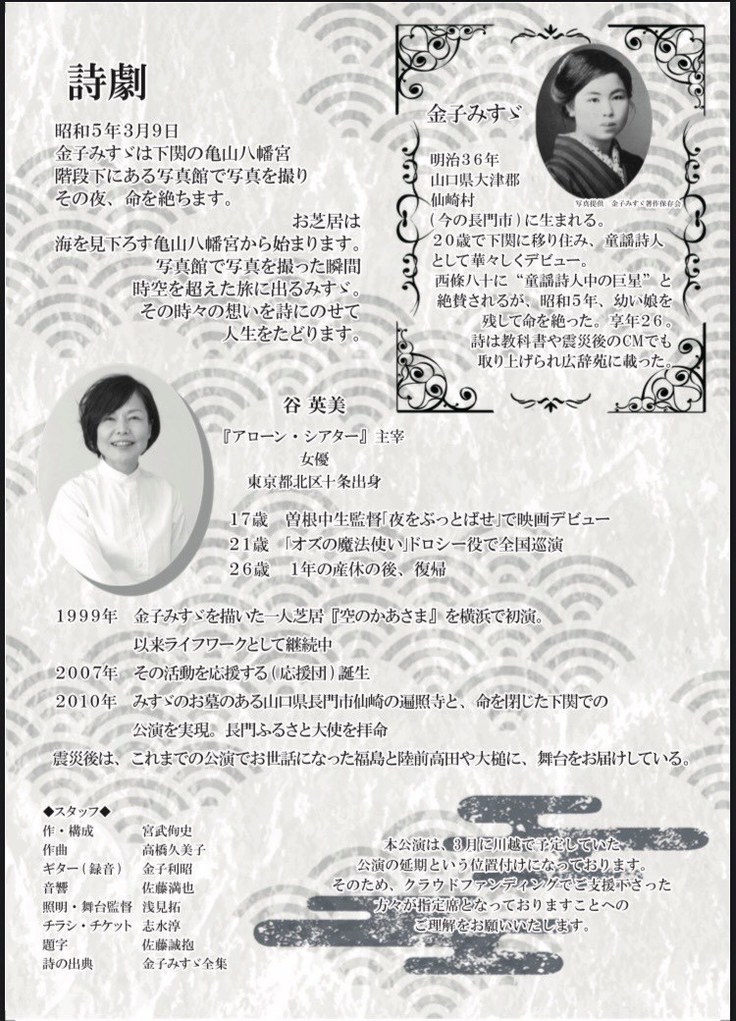 詩劇
昭和5年3月9日
金子みすゞは下関の亀山八幡宮
階段下にある写真館で写真を撮り
その夜、命を絶ちます。
お芝居は
海を見下ろす亀山八幡宮から始まります。
写真館で写真を撮った瞬間
時空を超えた旅に出るみすゞ。
その時々の想いを詩にのせて
人生をたどります。
金子みすゞ
写真提供 金子みすゞ著作保存会
明治36年
山口県大津郡
仙崎村
(今の長門市)に生まれる。
20歳で下関に移り住み、童謡詩人
として華々しくデビュー。
西條八十に“童謡詩人中の巨星”と
絶賛されるが、昭和5年、幼い娘を
残して命を絶った。享年26。
詩は教科書や震災後のCMでも
取り上げられ広辞苑に載った。
谷 英美
『アローン・シアター』主宰
女優
東京都北区十条出身
17歳 曽根中生監督「夜をぶっとばせ」で映画デビュー
21歳 「オズの魔法使い」ドロシー役で全国巡演
26歳 1年の産休の後、復帰
1999年 金子みすゞを描いた一人芝居『空のかあさま』を横浜で初演。
以来ライフワークとして継続中
2007年 その活動を応援する(応援団)誕生
2010年 みすゞのお墓のある山口県長門市仙崎の遍照寺と、命を閉じた下関での
公演を実現。長門ふるさと大使を拝命
震災後は、これまでの公演でお世話になった福島と陸前高田や大槌に、舞台をお届けしている。
◆スタッフ◆
作・構成 宮武侚史
作曲 高橋久美子
ギター(録音) 金子利昭
音響 佐藤満也
照明・舞台監督 浅見拓
チラシ・チケット 志水淳
題字 佐藤誠抱
詩の出典 金子みすゞ全集
本公演は、3月に川越で予定していた
公演の延期という位置付けになっております。
そのため、クラウドファンディングでご支援下さった
方々が指定席となっておりますことへの
ご理解をお願いいたします。